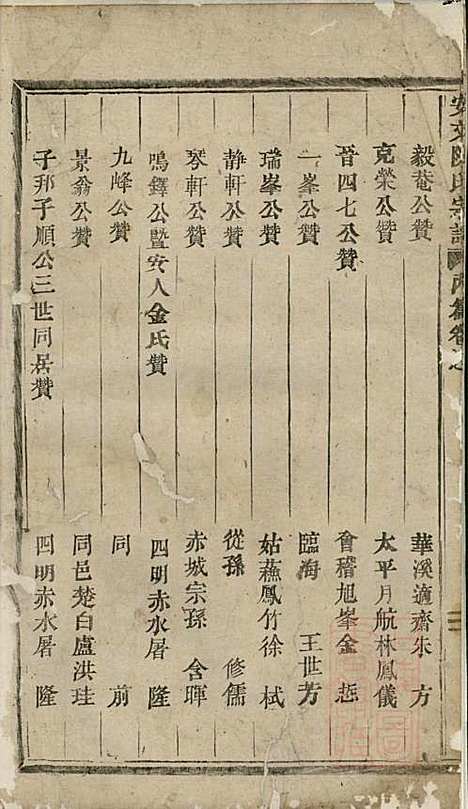 安文陳氏宗譜 內篇卷之
毅菴公贊 華溪適齋朱方
克榮公贊 太平月航林鳳儀
晉四七公贊 會稽旭峯金㤠
一峯公贊 臨海王世芳
瑞峯公贊 姑蘇鳳竹徐栻
静軒公贊 從孫修儒
琴軒公贊 赤城宗孫含暉
鳴鐸公暨安人金氏贊 四明赤水屠隆
九峰公贊 同前
景翁公贊 同邑楚白盧洪珪
子邦子順公三世同居贊 四明赤水屠隆